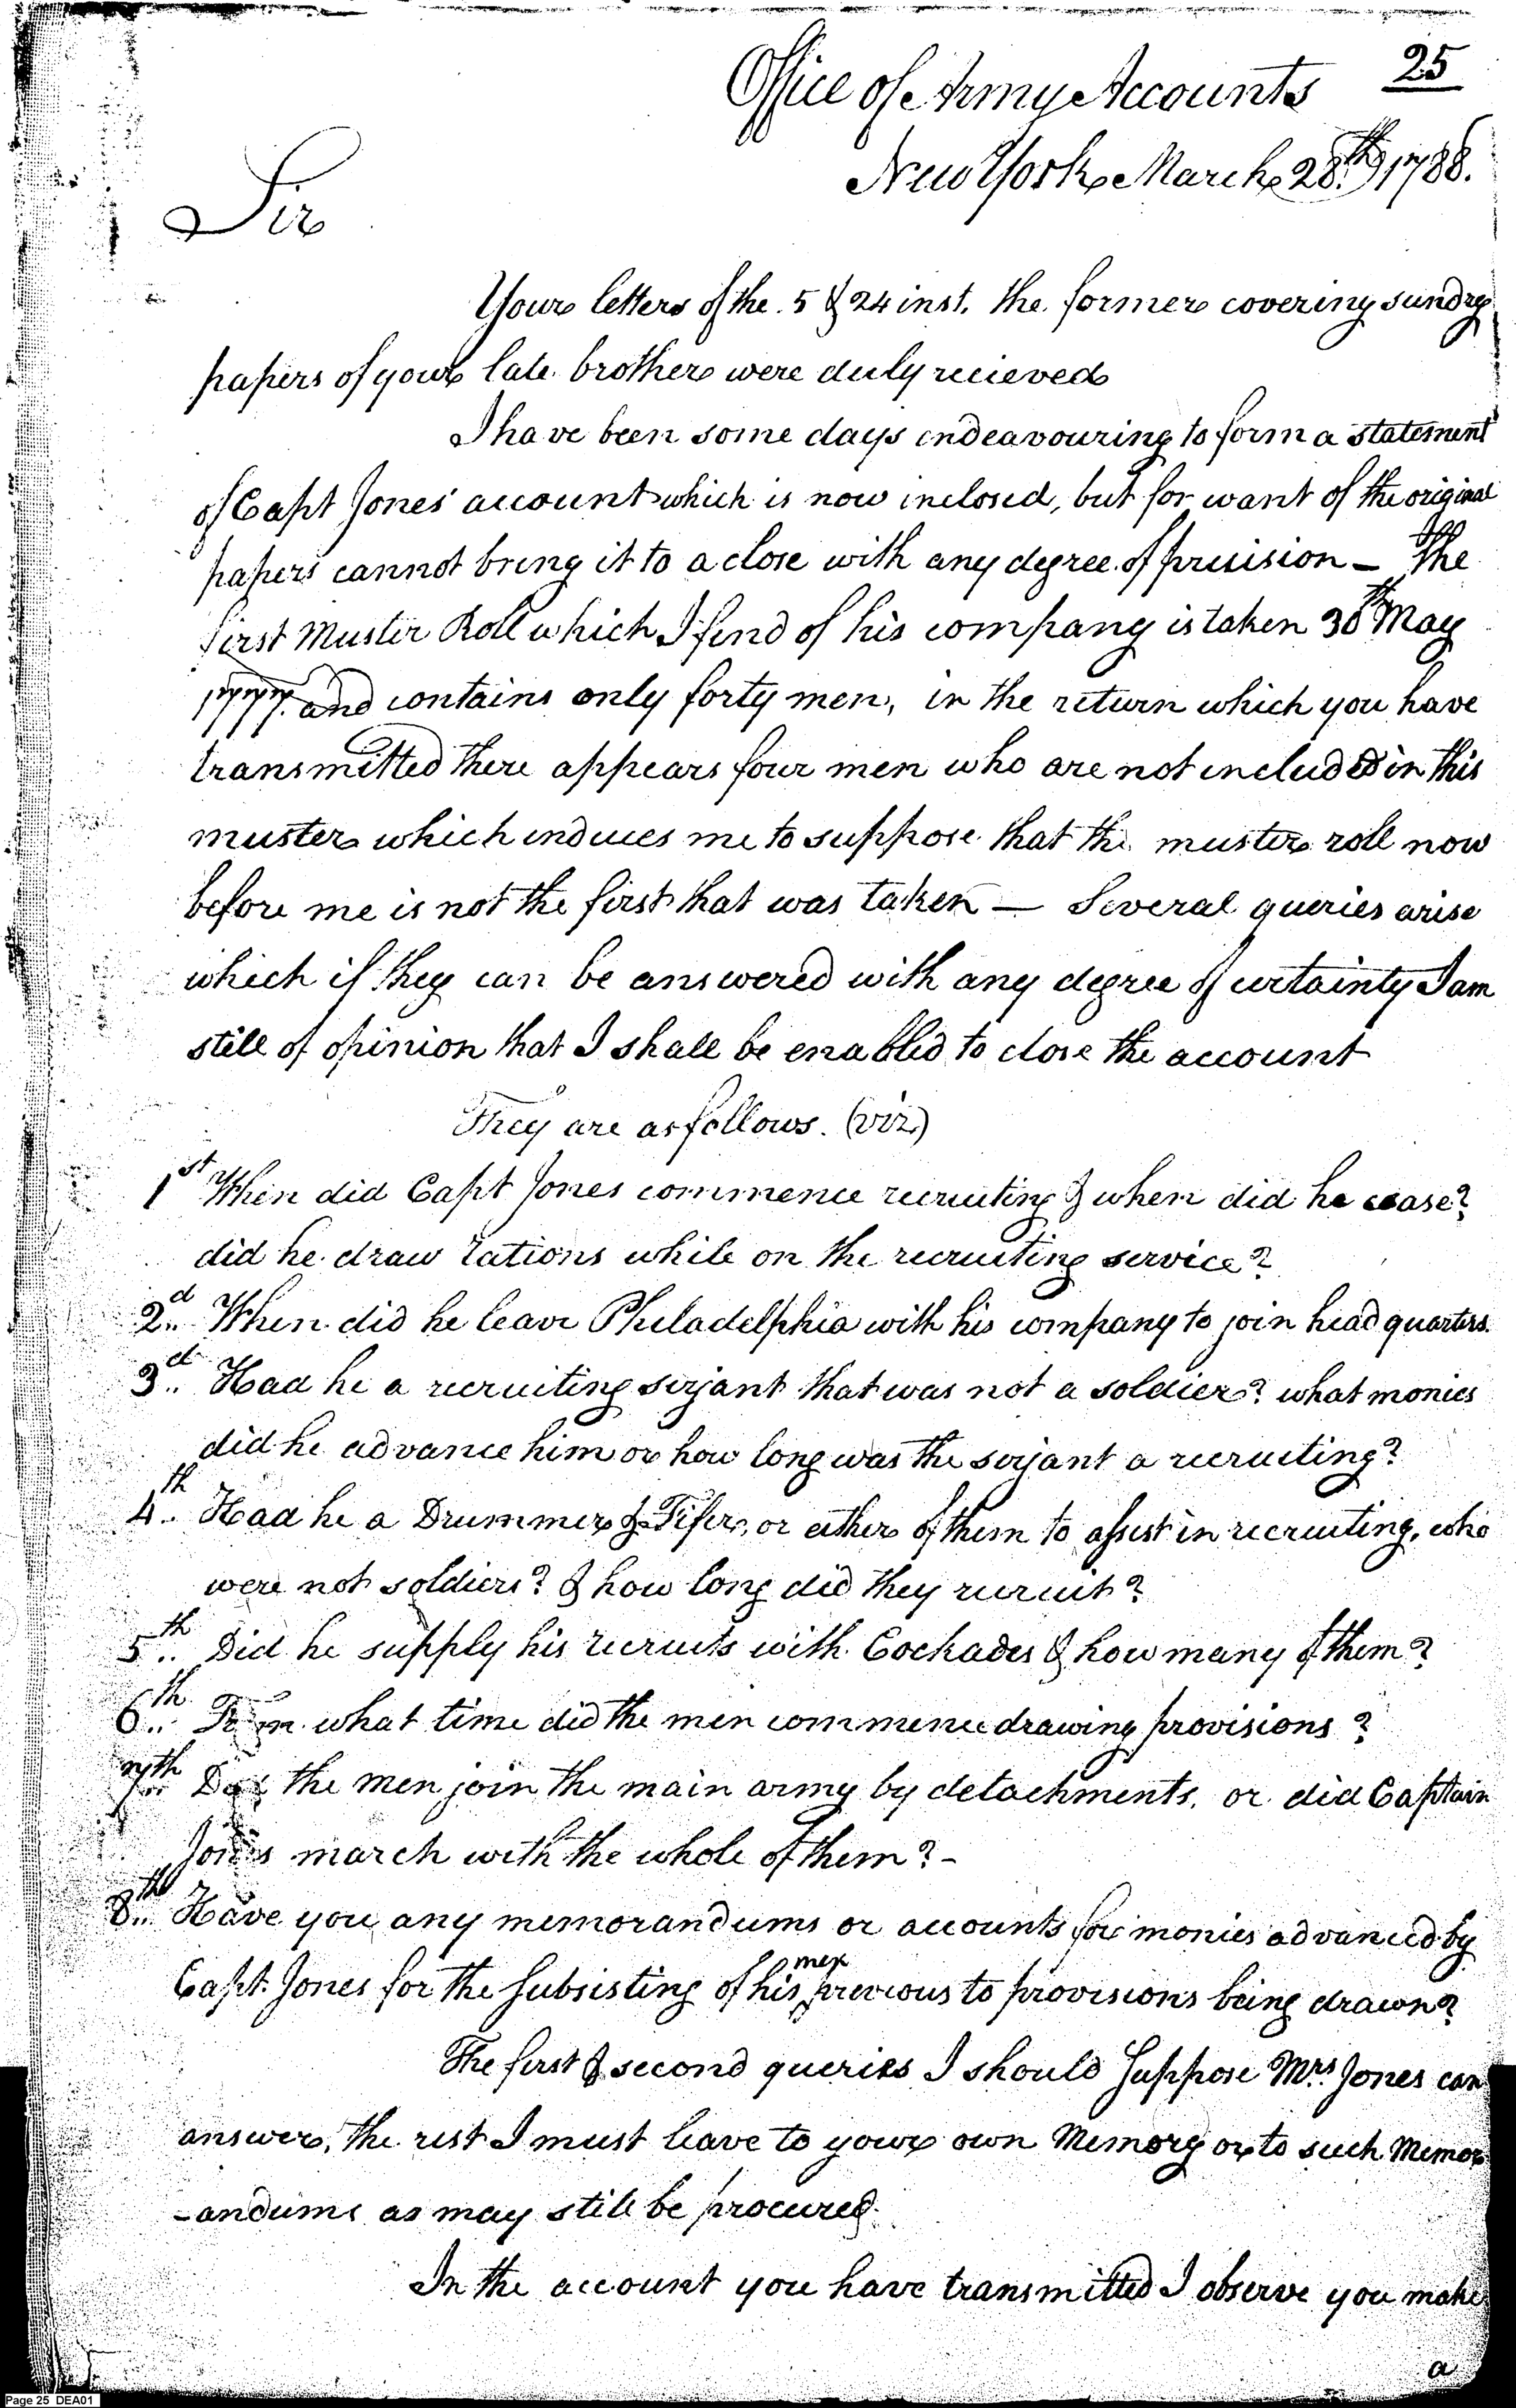 25
Office of Army Accounts
New York March 28th 1788.
Sir
Your letters of the 5 & 24 inst. the former covering sundry
papers of your late brother were duly recieved
I have been some days endeavouring to form a statement
of Capt Jones' account which is now inclosed, but for want of the original
papers cannot bring it to a close with any degree of precision – The
first Muster Roll which I find of his company is taken 30th May
1777. and contains only forty men, in the return which you have
transmitted there appears four men who are not included in this
muster which induces me to suppose that the muster roll now
before me is not the first that was taken — Several queries arise
which if they can be answered with any degree of certainty I am
still of opinion that I shall be enabled to close the account
They are as follows. (viz)
1st When did Capt Jones commence recruiting & when did he cease?
did he draw rations while on the recruiting service?
2d.. When did he leave Philadelphia with his company to join head quarters.
3d.. Had he a recruiting serjant that was not a soldier? what monies
did he advance him or how long was the serjant a recruiting?
4th.. Had he a Drummer & Fifer, or either of them to assist in recruiting, who
were not soldiers? & how long did they recruit?
5th.. Did he supply his recruits with Cockades & how many of them?
6th.. From what time did the men commence drawing provisions?
7th.. Did the men join the main army by detachments, or did Captain
Jones march with the whole of them? -
8th.. Have you any memorandums or accounts for monies advanced by
Capt. Jones for the Subsisting of his men previous to provisions being drawn?
The first & second queries I should Suppose Mrs. Jones can
answer, the rest I must leave to your own Memory or to such Memor
-andums as may still be procured.
In the account you have transmitted I observe you make
a
Page 25 DEA01